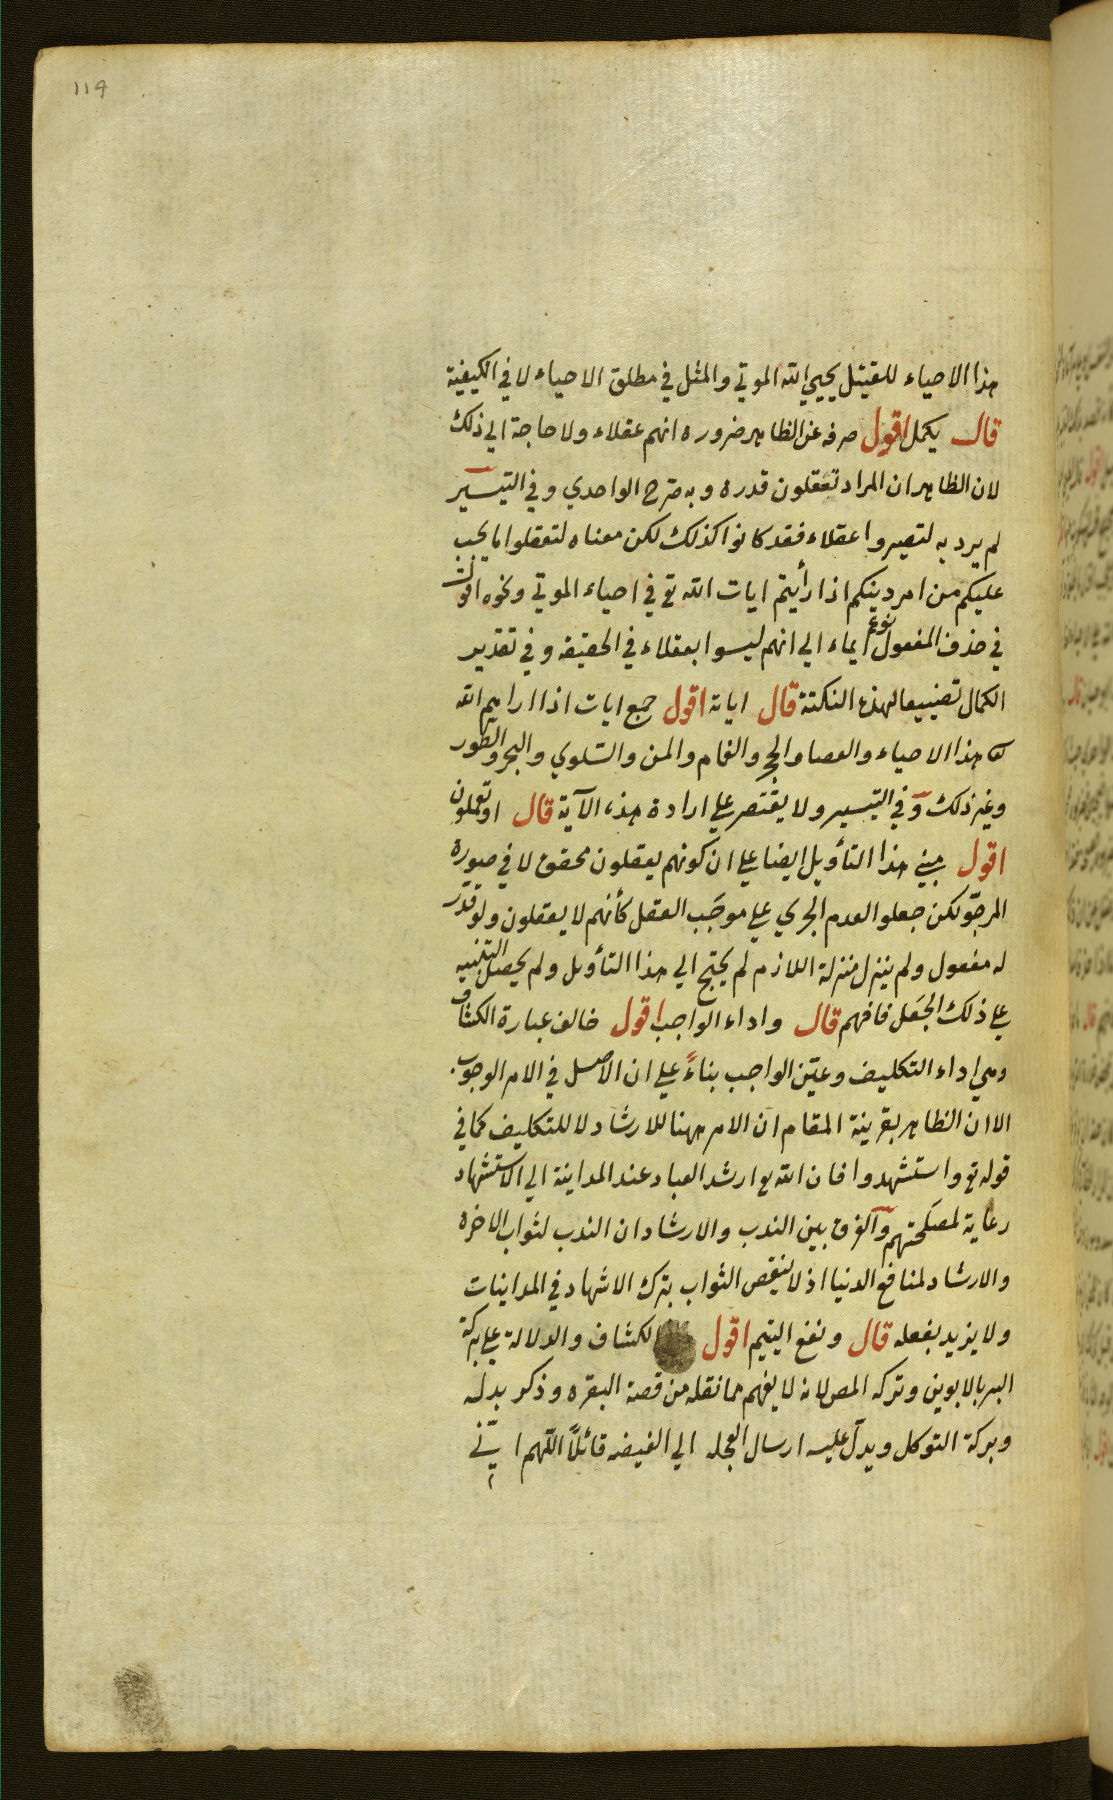 ١١٩
هذا الاحياء للقيتل يحيي الله الموتي والمثل في مطلق الاحياء لا في الكيفية
قال يكمل اقول صرفه عن الظاهر ضروره انهم عقلاء ولا حاجة الي ذلك
لان الظاهر ان المراد تعقلون قدره وبه صرح الواحدي وفي التيسير
لم يرد به لتصيروا عقلاء فقد كانوا كذلك لكن معناه لتعقلوا ما يجب
عليكم من امر دينكم اذا رأيتم ايات الله تع في احياء الموتي ونحوه اقول
في حذف المفعول نوع ايماء الي انهم ليسوا بعقلاء في الحقيقه وفي تقدير
الكمال تضييعا لهذه النكتة قال اياته اقول جمع ايات اذا اراهم الله
هذا الاحياء والعصا والحجر والغمام والمن والسلوي والبحر والطور
وغير ذلك وفي التيسير ولا يقتصر علي ارادة هذه الآية قال او تعملون
اقول مبني هذا التأويل ايضا علي ان كونهم يعقلون محقق لا في صورة
المرجو لكن جعلوا لعدم الجري علي موجَب العقل كأنهم لا يعقلون ولو قدر
له مفعول ولم ينزل منزلة اللازم لم يحتج الي هذا التأويل ولم يحصل التنبيه
علي ذلك الجَعَل فافهم قال واداء الواجب اقول خالف عبارة الكشاف
وهي اداء التكليف وعين الواجب بناءً علي ان الاصل في الامر الوجوب
الا ان الظاهر بقرينة المقام ان الامر ههنا للارشاد لا للتكليف كما في
قوله تع واستشهدوا فان الله تع ارشد العباد عند المداينة الي الاستشهاد
رعاية لمصلحتهم والفرق بين الندب والارشاد ان الندب لثواب الاخرة
والارشاد لمنافع الدنيا اذ لا ينقص الثواب بترك الاشهاد في المداينات
ولا يزيد بفعله قال ونفع اليتيم اقول الكشاف والدلالة علي بركة
البر بالابوين وتركه المص لانه لا يفهم مما نقله من قصة البقره وذكر بدله
وبركة التوكل ويدلّ عليه ارسال العجلة الي الغيضه قائلاً اللهم انّي